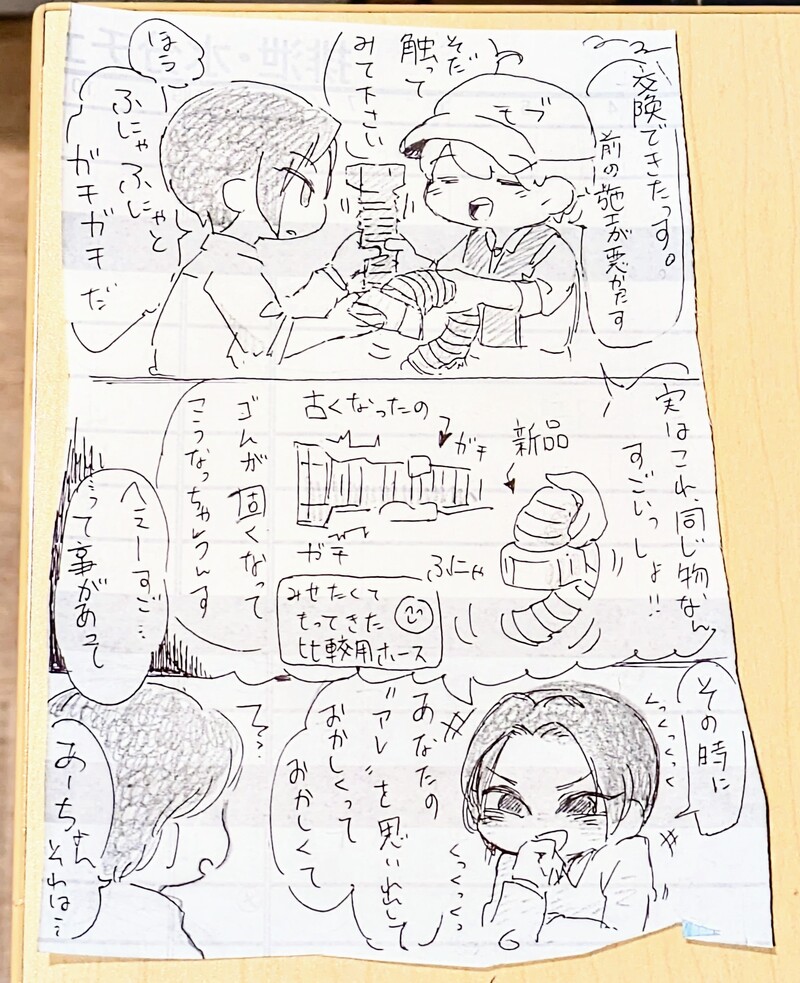 排泄・水分チェ
交換できたっす。
前の施工が悪かたす
モブ
そだ
触って
みて下さい
ほう
ふにゃふにゃと
ガチガチだ
実はこれ、同じ物なん
すごいっしょ!!
新品
古くなったの
ガチ
ガチ
ふにゃ
ゴムが固くなって
こうなっちゃうんす
みせたくて
もってきた
比較用ホース
へえーすご…
って事があって
その時に
くっくっくっく
あなたの
"アレ"を思い出して
おかしくって
おかしくて
くっくっくっ
て…
あーちょん
それは…
6